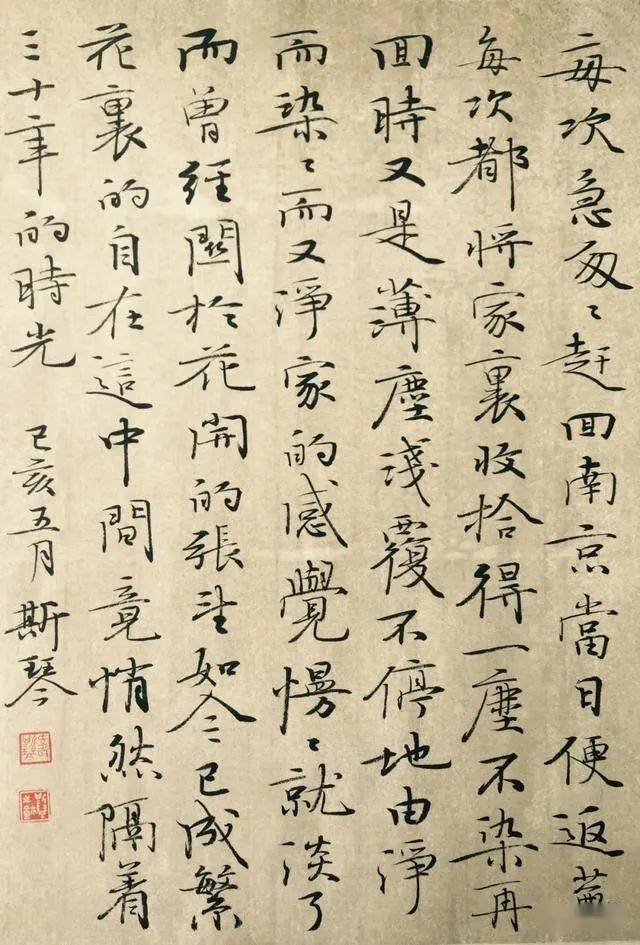 每次急匆〻趕回南京當日便返蕪
每次都將家裏收拾得一塵不染再
回時又是薄塵淺覆不停地由淨
而染〻而又淨家的感覺慢〻就淡了
而曾經關於花開的張望如今已成繁
花裏的自在這中間竟悄然隔着
三十年的時光 己亥五月 斯琴